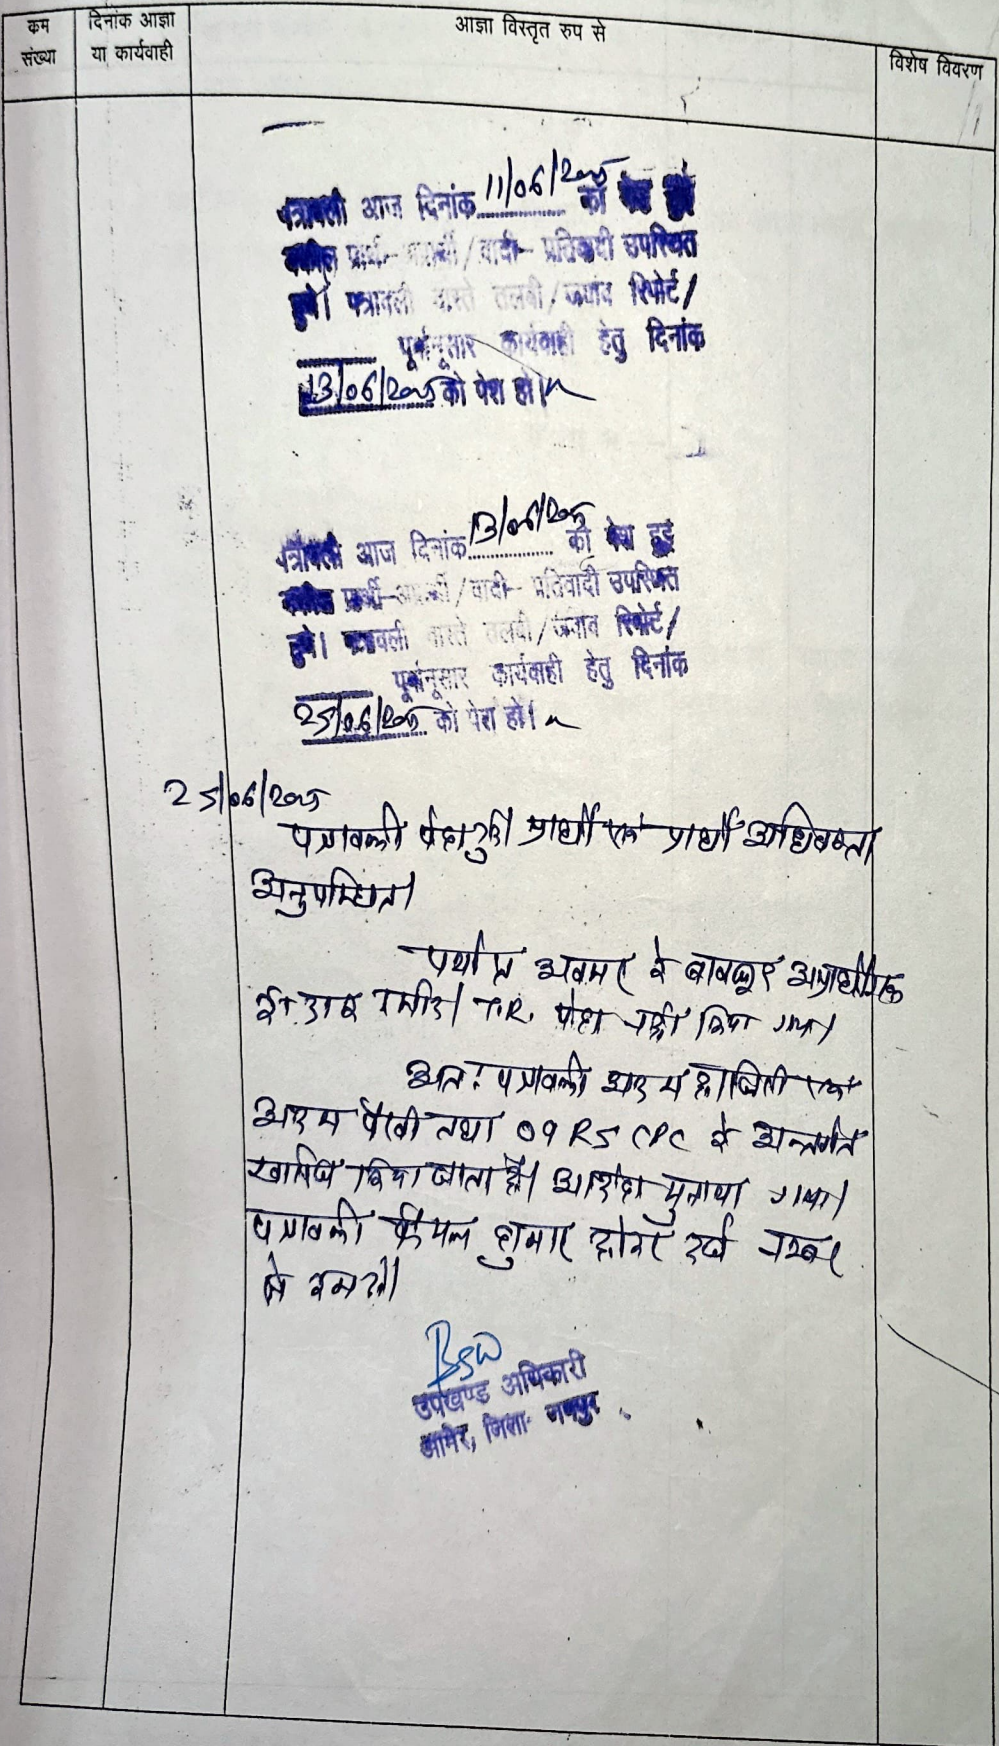 कम संख्या
दिनांक आज्ञा या कार्यवाही
आज्ञा विस्तृत रुप से
विशेष विवरण
पत्रावली आज दिनांक 11/06/2025 को पेश हुई
वकील प्रार्थी-अप्रार्थी/वादी-प्रतिवादी उपस्थित
हुये। पत्रावली वास्ते तलबी/जवाब रिपोर्ट/
पूर्वानुसार कार्यवाही हेतु दिनांक
13/06/2025 को पेश हो।
पत्रावली आज दिनांक 13/06/2025 को पेश हुई
वकील प्रार्थी-अप्रार्थी/वादी-प्रतिवादी उपस्थित
हुये। पत्रावली वास्ते तलबी/जवाब रिपोर्ट/
पूर्वानुसार कार्यवाही हेतु दिनांक
25/06/2025 को पेश हो।
25/06/2025
पत्रावली पेश हुई। प्रार्थी एवं प्रार्थी अधिवक्ता
अनुपस्थित।
पर्याप्त अवसर के बावजूद अप्रार्थीगण
T.R. पेश नहीं किया गया।
अतः पत्रावली अदम हाजिरी एवं
अदम पैरवी तथा O9 R5 CPC के अन्तर्गत
खारिज किया जाता है। आदेश सुनाया गया।
पत्रावली फैसल शुमार होकर दर्ज नम्बर
से कम हो।
उपखण्ड अधिकारी
आमेर, जिला- जयपुर